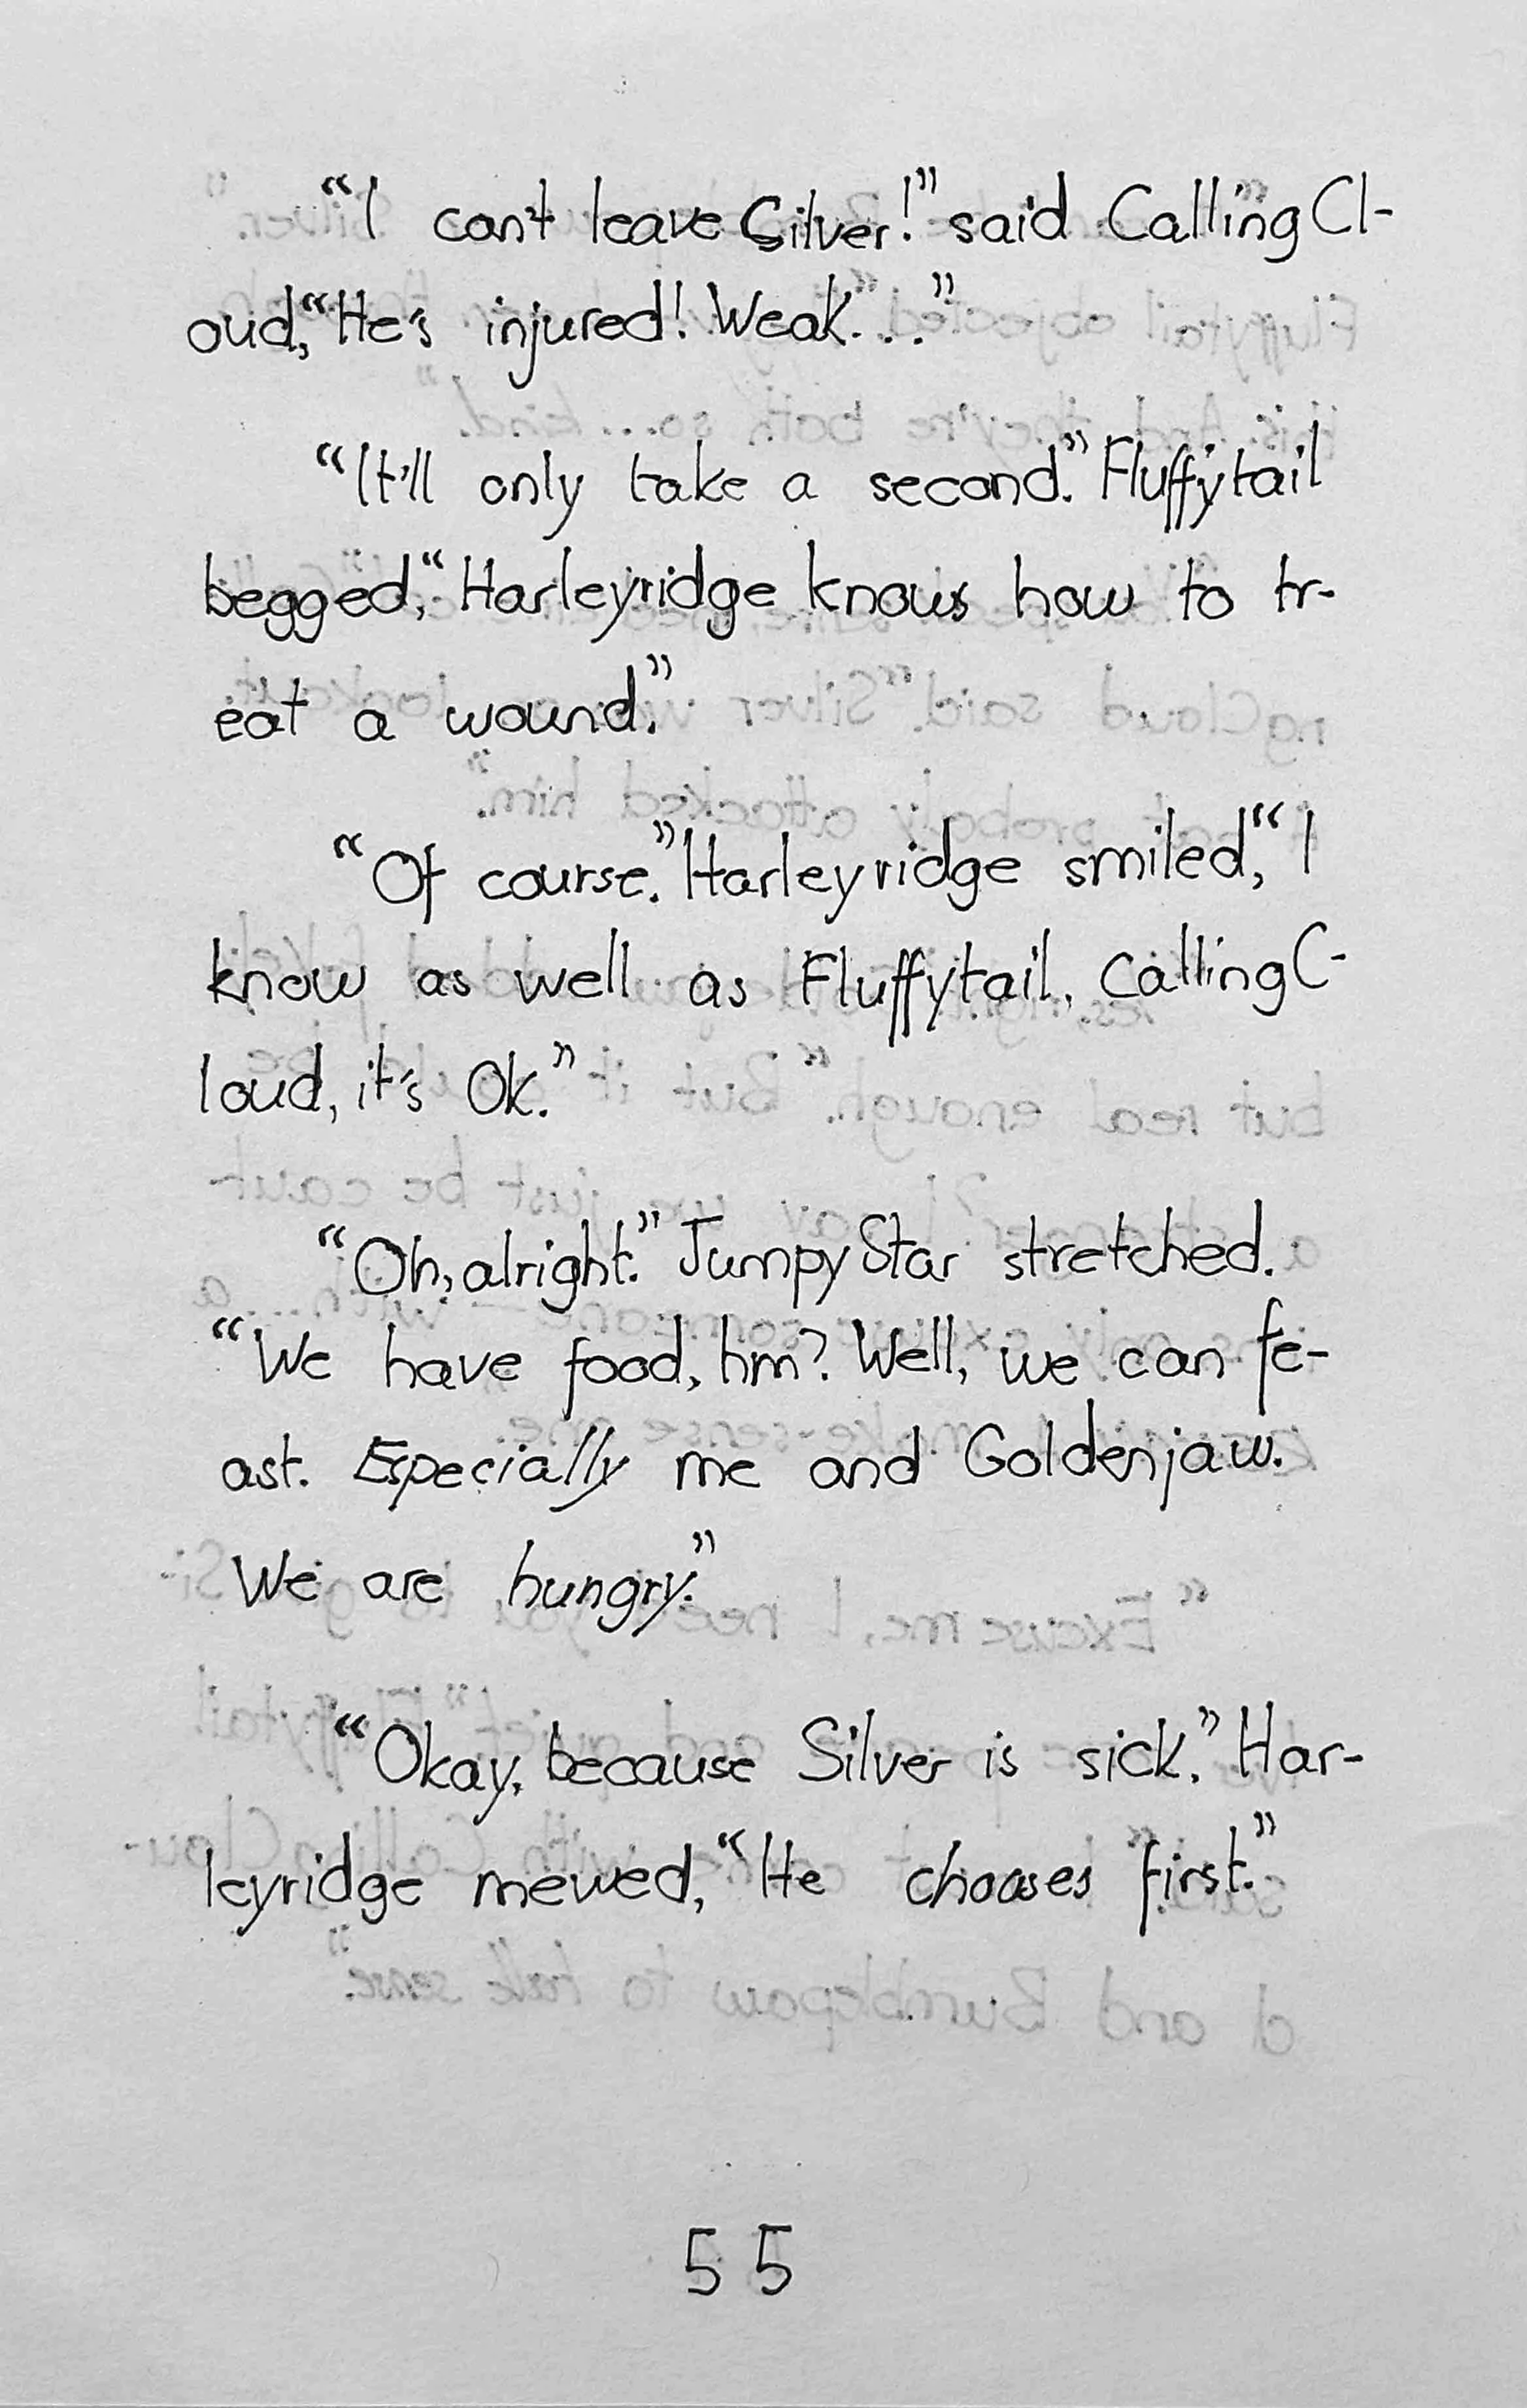 “I can't leave Silver!” said CallingCl-
oud, “He's injured! Weak...”
“It'll only take a second.” Fluffytail
begged, “Harleyridge knows how to tr-
eat a wound.”
“Of course.” Harleyridge smiled, “I
know as well as Fluffytail. CallingC-
loud, it's Ok.”
“Oh, alright.” JumpyStar stretched.
“We have food, hm? Well, we can fe-
ast. Especially me and Goldenjaw.
We are hungry.”
“Okay, because Silver is sick.” Har-
leyridge mewed, “He chooses first.”
55